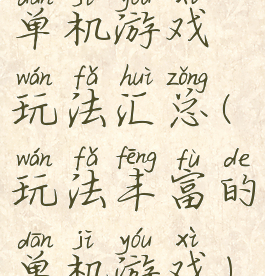 dān jī yóu xì
单机游戏
wán fǎ huì zǒng
玩法汇总(
wán fǎ fēng fù de
玩法丰富的
dān jī yóu xì
单机游戏)